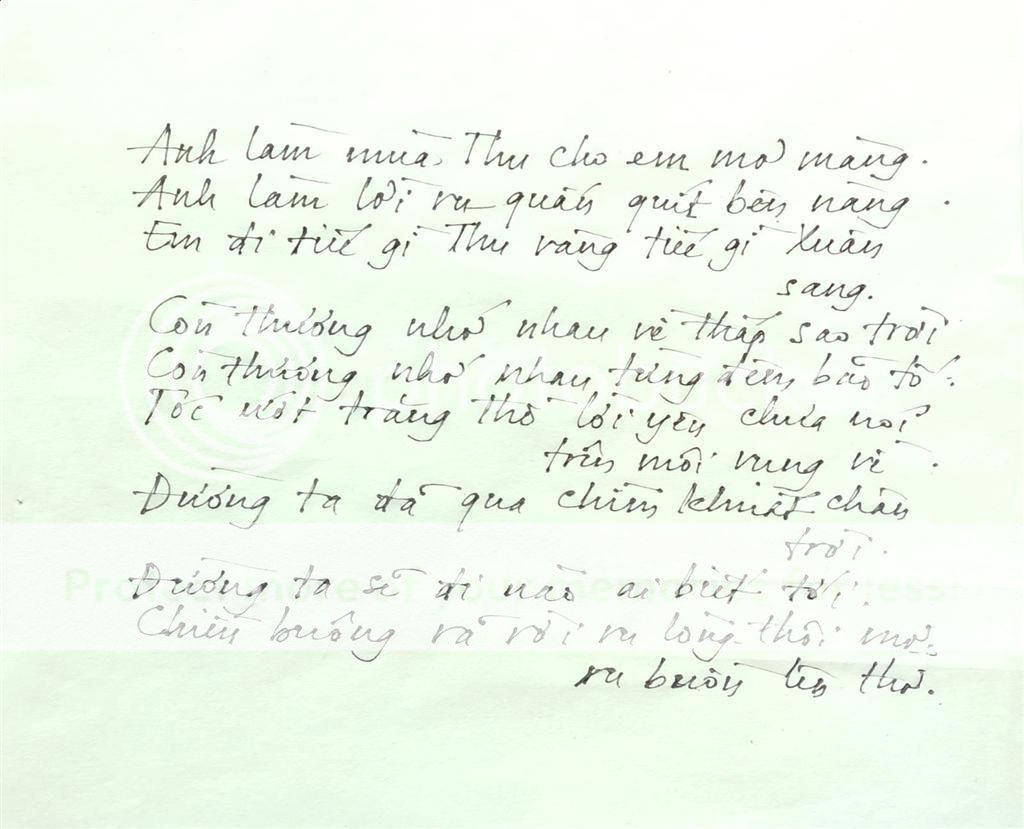 Anh làm mùa Thu cho em mơ màng.
Anh làm lời ru quấn quít bên nàng.
Em đi tiếc gì Thu vàng tiếc gì Xuân
sang.
Còn thương nhớ nhau về thắp sao trời
Còn thương nhớ nhau từng đêm bão tố.
Tóc ướt trăng thề lời yêu chưa nói
trên môi vụng về.
Đường ta đã qua chìm khuất chân
trời.
Đường ta sẽ đi nào ai biết tới
Chiều buông vã rồi ru lòng thôi mơ.
ru buồn lên thơ.